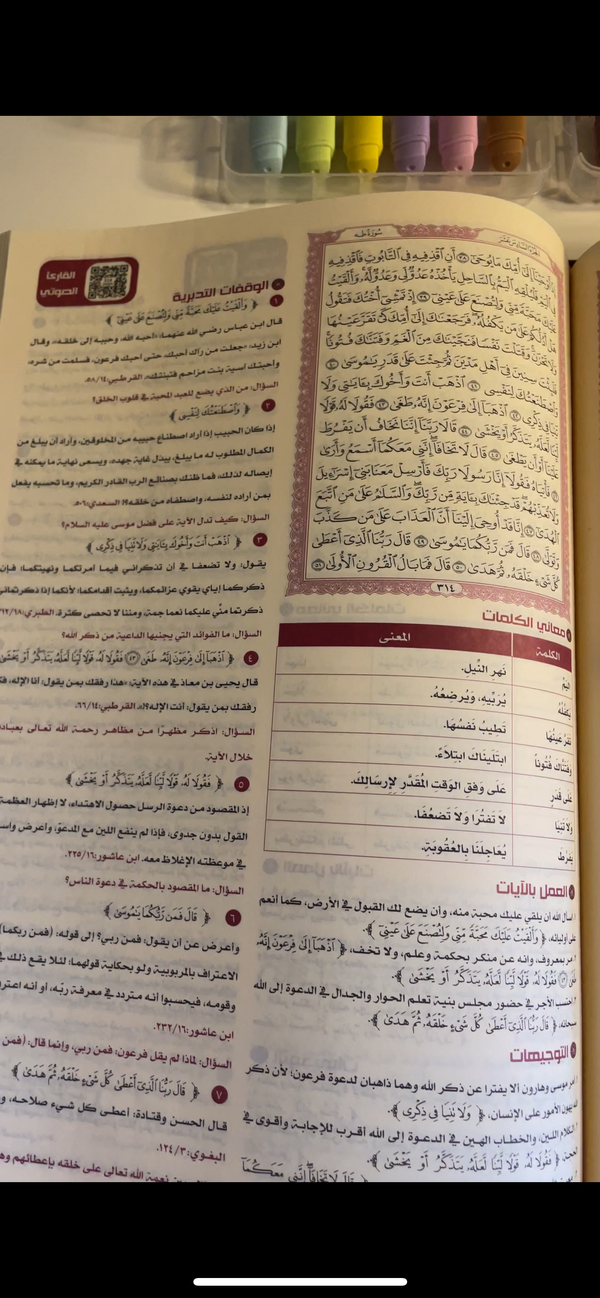 الجزء السادس عشر
سورة طه
إِذْ أَوْحَيْنَا إِلَىٰ أُمِّكَ مَا يُوحَىٰ ٣٨ أَنِ اقْذِفِيهِ فِي التَّابُوتِ فَاقْذِفِيهِ
فِي الْيَمِّ فَلْيُلْقِهِ الْيَمُّ بِالسَّاحِلِ يَأْخُذْهُ عَدُوٌّ لِّي وَعَدُوٌّ لَّهُ وَأَلْقَيْتُ
عَلَيْكَ مَحَبَّةً مِّنِّي وَلِتُصْنَعَ عَلَىٰ عَيْنِي ٣٩ إِذْ تَمْشِي أُخْتُكَ فَتَقُولُ
هَلْ أَدُلُّكُمْ عَلَىٰ مَن يَكْفُلُهُ فَرَجَعْنَاكَ إِلَىٰ أُمِّكَ كَيْ تَقَرَّ عَيْنُهَا
وَلَا تَحْزَنَ وَقَتَلْتَ نَفْسًا فَنَجَّيْنَاكَ مِنَ الْغَمِّ وَفَتَنَّاكَ فُتُونًا
فَلَبِثْتَ سِنِينَ فِي أَهْلِ مَدْيَنَ ثُمَّ جِئْتَ عَلَىٰ قَدَرٍ يَا مُوسَىٰ ٤٠
وَاصْطَنَعْتُكَ لِنَفْسِي ٤١ اذْهَبْ أَنتَ وَأَخُوكَ بِآيَاتِي وَلَا
تَنِيَا فِي ذِكْرِي ٤٢ اذْهَبَا إِلَىٰ فِرْعَوْنَ إِنَّهُ طَغَىٰ ٤٣ فَقُولَا لَهُ قَوْلًا
لَّيِّنًا لَّعَلَّهُ يَتَذَكَّرُ أَوْ يَخْشَىٰ ٤٤ قَالَا رَبَّنَا إِنَّنَا نَخَافُ أَن يَفْرُطَ
عَلَيْنَا أَوْ أَن يَطْغَىٰ ٤٥ قَالَ لَا تَخَافَا إِنَّنِي مَعَكُمَا أَسْمَعُ وَأَرَىٰ
٤٦ فَأْتِيَاهُ فَقُولَا إِنَّا رَسُولَا رَبِّكَ فَأَرْسِلْ مَعَنَا بَنِي إِسْرَائِيلَ
وَلَا تُعَذِّبْهُمْ قَدْ جِئْنَاكَ بِآيَةٍ مِّن رَّبِّكَ وَالسَّلَامُ عَلَىٰ مَنِ اتَّبَعَ
الْهُدَىٰ ٤٧ إِنَّا قَدْ أُوحِيَ إِلَيْنَا أَنَّ الْعَذَابَ عَلَىٰ مَن كَذَّبَ
وَتَوَلَّىٰ ٤٨ قَالَ فَمَن رَّبُّكُمَا يَا مُوسَىٰ ٤٩ قَالَ رَبُّنَا الَّذِي أَعْطَىٰ
كُلَّ شَيْءٍ خَلْقَهُ ثُمَّ هَدَىٰ ٥٠ قَالَ فَمَا بَالُ الْقُرُونِ الْأُولَىٰ ٥١
٣١٤
معاني الكلمات
الكلمة المعنى
اليم نَهرِ النِّيلِ.
يكفله يُرَبِّيهِ، وَيُرضِعُهُ.
تقر عينها تَطِيبُ نَفسُهَا.
وفتناك فتونا ابتَلَينَاكَ ابتِلَاءً.
على قدر عَلَى وَفقِ الوَقتِ المُقَدَّرِ لِإرسَالِكَ.
ولا تنيا لَا تَفتُرَا وَلَا تَضعُفَا.
يفرط يُعَاجِلَنَا بِالعُقُوبَةِ.
العمل بالآيات
اسأل الله أن يلقي عليك محبة منه، وأن يضع لك القبول في الأرض، كما أنعم
على أوليائه، ﴿ وَأَلْقَيْتُ عَلَيْكَ مَحَبَّةً مِّنِّي وَلِتُصْنَعَ عَلَىٰ عَيْنِي ﴾.
مر بمعروف، وانه عن منكر بحكمة وعلم، ولا تخف، ﴿ اذْهَبَا إِلَىٰ فِرْعَوْنَ إِنَّهُ
طَغَىٰ ٤٣ فَقُولَا لَهُ قَوْلًا لَّيِّنًا لَّعَلَّهُ يَتَذَكَّرُ أَوْ يَخْشَىٰ ﴾.
احتسب الأجر في حضور مجلس بنية تعلم الحوار والجدال في الدعوة إلى الله
سبحانه، ﴿ قَالَ رَبُّنَا الَّذِي أَعْطَىٰ كُلَّ شَيْءٍ خَلْقَهُ ثُمَّ هَدَىٰ ﴾.
التوجيهات
أمر موسى وهارون ألا يفترا عن ذكر الله وهما ذاهبان لدعوة فرعون؛ لأن ذكر
الله يهون الأمور على الإنسان، ﴿ وَلَا تَنِيَا فِي ذِكْرِي ﴾.
الكلام اللين، والخطاب الهين في الدعوة إلى الله أقرب للإجابة وأقوى في
الحجة، ﴿ فَقُولَا لَهُ قَوْلًا لَّيِّنًا لَّعَلَّهُ يَتَذَكَّرُ أَوْ يَخْشَىٰ ﴾.
﴿ قَالَ لَا تَخَافَا إِنَّنِي مَعَكُمَا
القارئ
الصوتي
الوقفات التدبرية
١ ﴿ وَأَلْقَيْتُ عَلَيْكَ مَحَبَّةً مِّنِّي وَلِتُصْنَعَ عَلَىٰ عَيْنِي ﴾
قال ابن عباس رضي الله عنهما: «أحبه الله، وحببه إلى خلقه»، وقال
ابن زيد: «جعلت من رآك أحبك، حتى أحبك فرعون، فسلمت من شره،
وأحبتك آسية بنت مزاحم فتبنتك». القرطبي:٥٨/١٤.
السؤال: من الذي يضع للعبد المحبة في قلوب الخلق؟
٢ ﴿ وَاصْطَنَعْتُكَ لِنَفْسِي ﴾
إذا كان الحبيب إذا أراد اصطناع حبيبه من المخلوقين، وأراد أن يبلغ من
الكمال المطلوب له ما يبلغ، يبذل غاية جهده، ويسعى نهاية ما يمكنه في
إيصاله لذلك، فما ظنك بصنائع الرب القادر الكريم، وما تحسبه يفعل
بمن أراده لنفسه، واصطفاه من خلقه؟! السعدي:٥٠٦.
السؤال: كيف تدل الآية على فضل موسى عليه السلام؟
٣ ﴿ اذْهَبْ أَنتَ وَأَخُوكَ بِآيَاتِي وَلَا تَنِيَا فِي ذِكْرِي ﴾
يقول: ولا تضعفا في أن تذكراني فيما أمرتكما ونهيتكما؛ فإن
ذكركما إياي يقوي عزائمكما، ويثبت أقدامكما؛ لأنكما إذا ذكرتماني
ذكرتما مني عليكما نعما جمة، ومننا لا تحصى كثرة. الطبري:٣١٢/١٨.
السؤال: ما الفوائد التي يجنيها الداعية من ذكر الله؟
٤ ﴿ اذْهَبَا إِلَىٰ فِرْعَوْنَ إِنَّهُ طَغَىٰ ٤٣ فَقُولَا لَهُ قَوْلًا لَّيِّنًا لَّعَلَّهُ يَتَذَكَّرُ أَوْ يَخْشَىٰ
قال يحيى بن معاذ في هذه الآية: «هذا رفقك بمن يقول: أنا الإله،
رفقك بمن يقول: أنت الإله؟!». القرطبي:٦٦/١٤.
السؤال: اذكر مظهرًا من مظاهر رحمة الله تعالى بعباده
خلال الآية.
٥ ﴿ فَقُولَا لَهُ قَوْلًا لَّيِّنًا لَّعَلَّهُ يَتَذَكَّرُ أَوْ يَخْشَىٰ ﴾
إذ المقصود من دعوة الرسل حصول الاهتداء، لا إظهار العظمة
القول بدون جدوى، فإذا لم ينفع اللين مع المدعوّ، وأعرض
في موعظته الإغلاظ معه. ابن عاشور:٢٢٥/١٦.
السؤال: ما المقصود بالحكمة في دعوة الناس؟
٦ ﴿ قَالَ فَمَن رَّبُّكُمَا يَا مُوسَىٰ ﴾
وأعرض عن أن يقول: فمن ربي؟ إلى قوله: (فمن ربكما)
الاعتراف بالمربوبية ولو بحكاية قولهما؛ لئلا يقع ذلك في
وقومه، فيحسبوا أنه متردد في معرفة ربّه، أو أنه
ابن عاشور:٢٣٢/١٦.
السؤال: لماذا لم يقل فرعون: فمن ربي، وإنما قال: (فمن
٧ ﴿ قَالَ رَبُّنَا الَّذِي أَعْطَىٰ كُلَّ شَيْءٍ خَلْقَهُ ثُمَّ هَدَىٰ ﴾
قال الحسن وقتادة: أعطى كل شيء صلاحه،
البغوي:١٢٤/٣.
نعمة الله تعالى على خلقه بإعطائهم